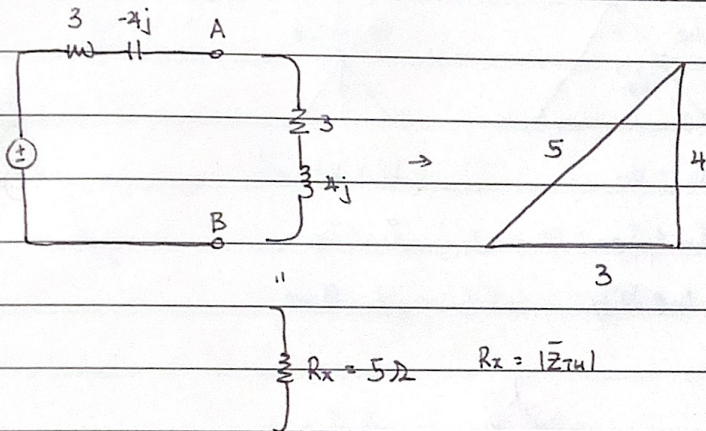 3 -4j A
3
5
4
4j
B
3
"
Rx = 5Ω Rx = |Z̄TH|